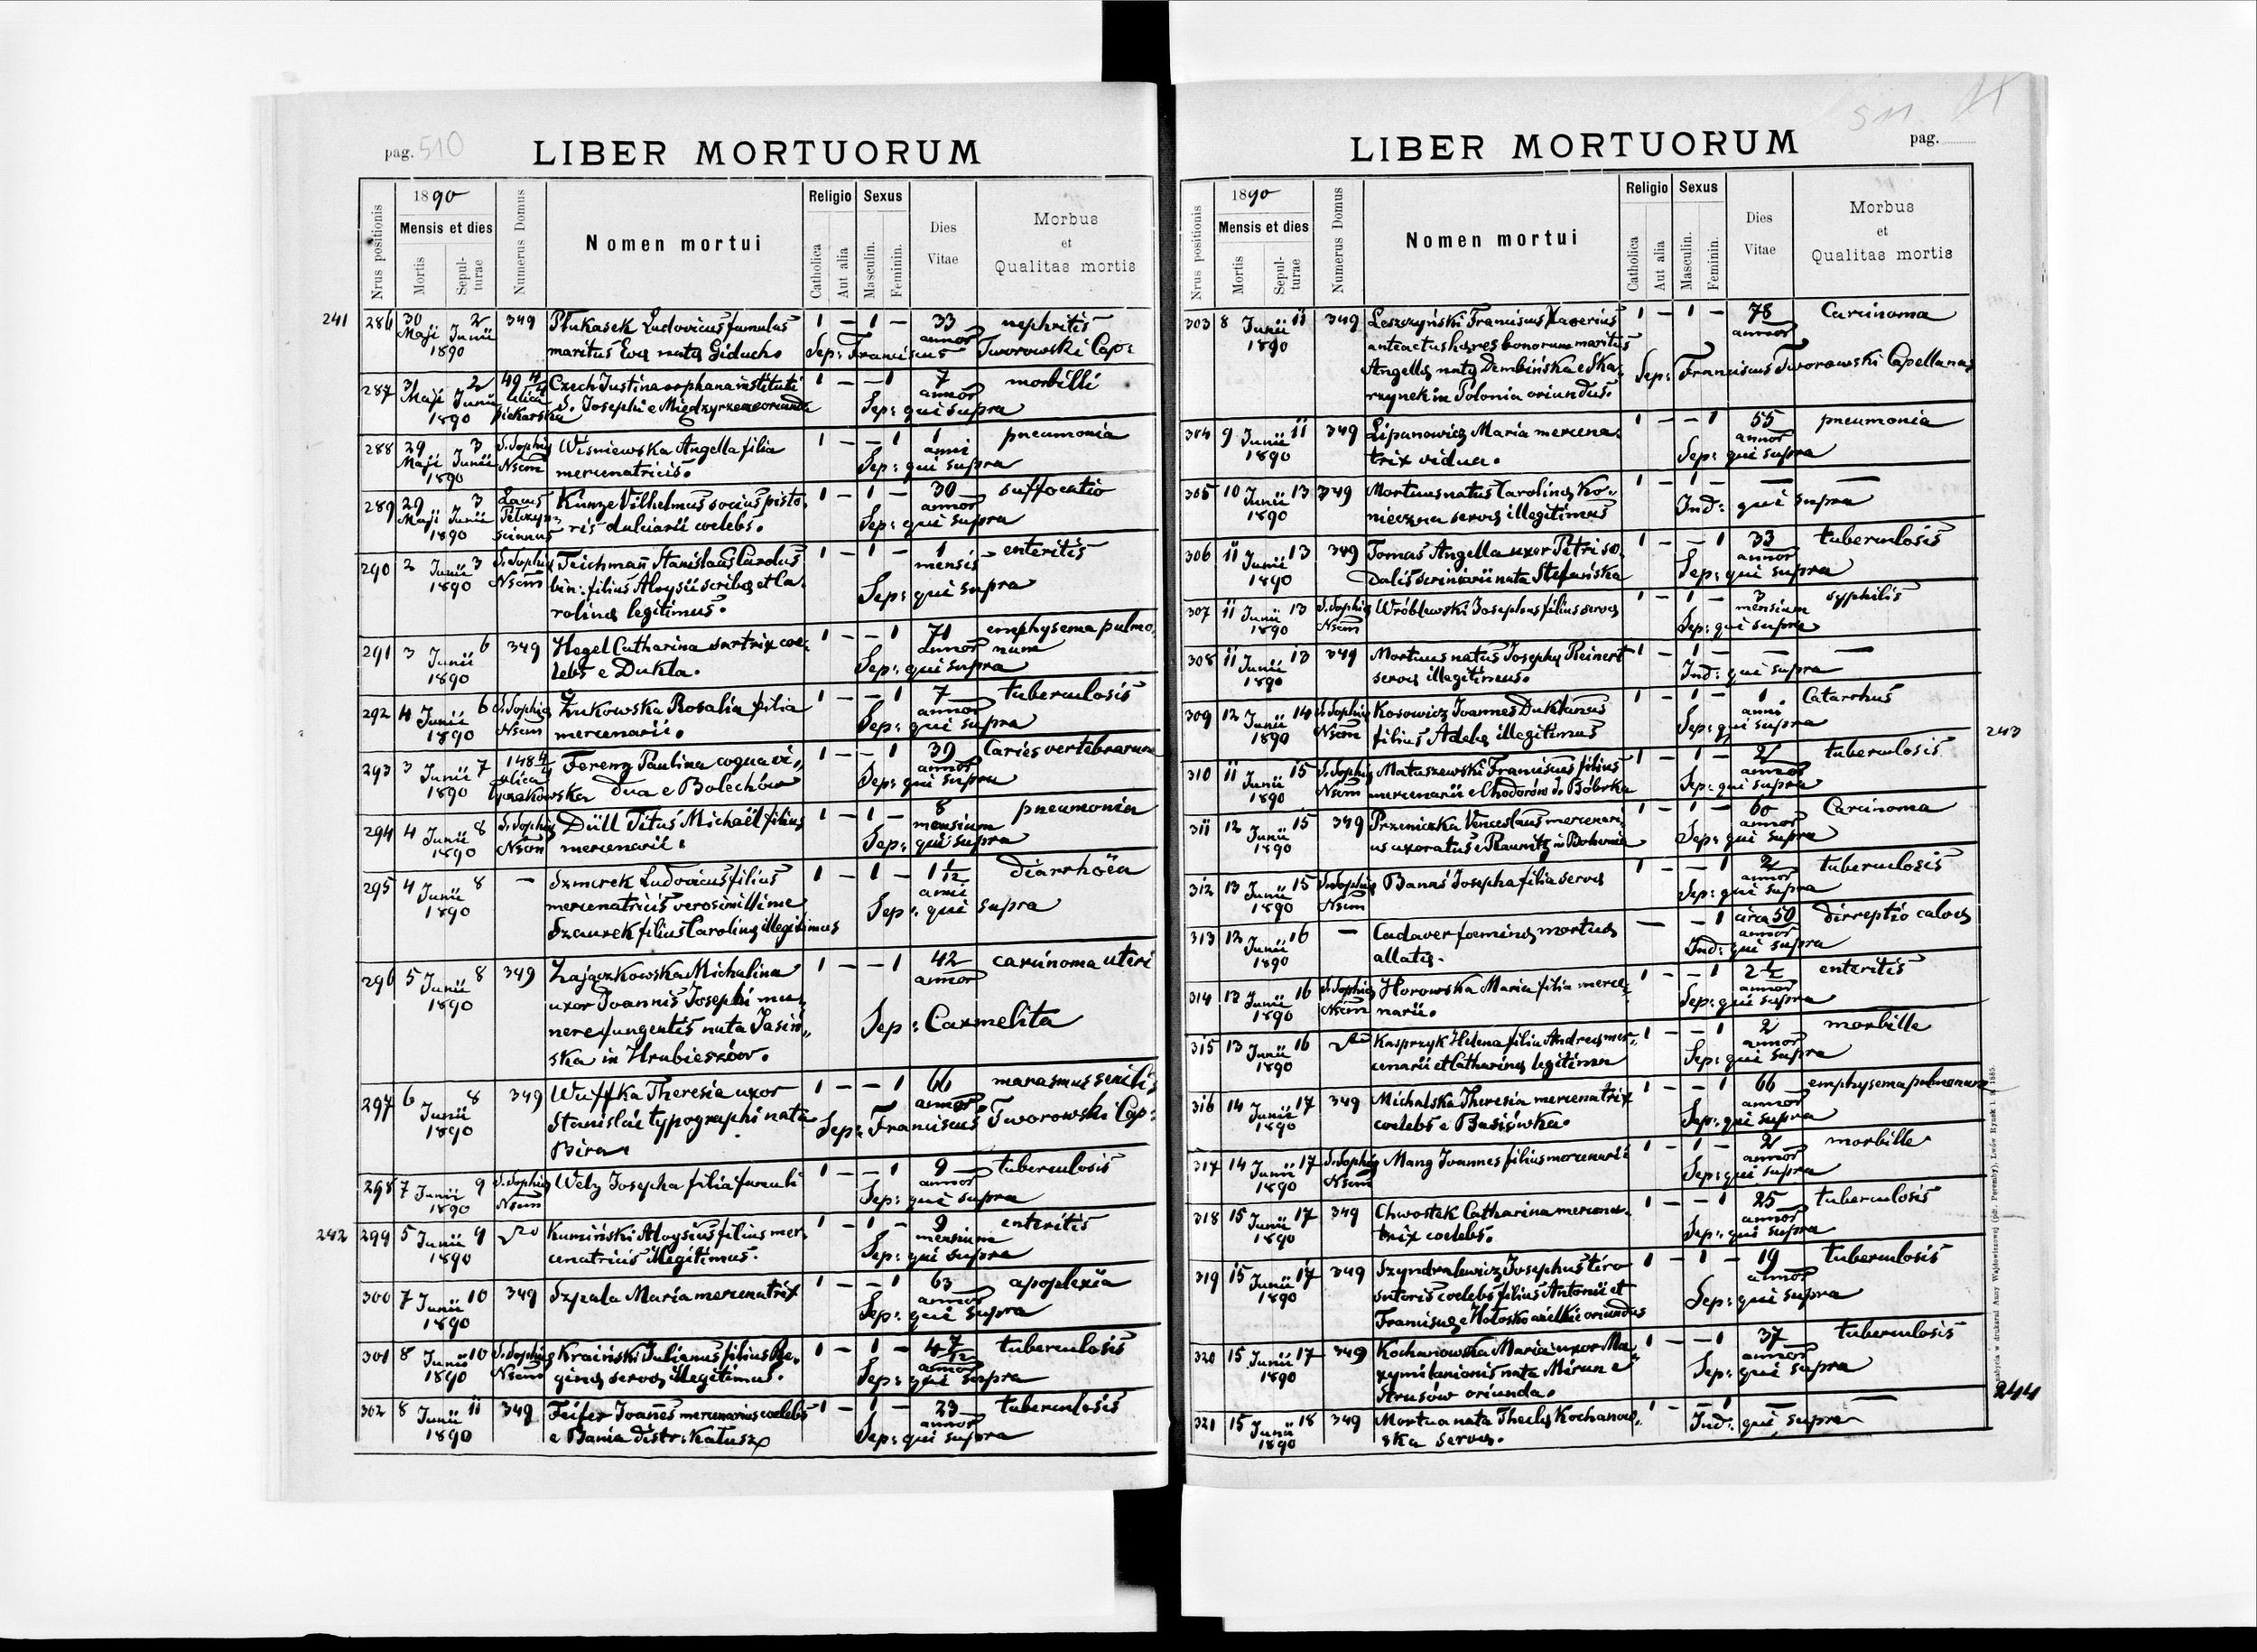 pag. 510
LIBER MORTUORUM
Nrus positionis
1890
Mensis et dies
Mortis
Sepulturae
Numerus Domus
Nomen mortui
Religio
Catholica
Aut alia
Sexus
Masculin.
Feminin.
Dies
Vitae
Morbus
et
Qualitas mortis
241
286 30 Maji 2 Junii 1890 349 Ptukasek Ludovicus famulus 1 – 1 – 33 annor nephritis
maritus Evę natę Giduch. Sep: Franciscus Tworowski Cap:
287 31 Maji 2 Junii 1890 49 4/4 ulica Piekarska Czech Justina orphana instituti 1 – – 1 7 annor morbilli
S. Josephi e Międzyrzecze oriunda Sep: qui supra
288 29 Maji 3 Junii 1890 S. Sophię Nscm Wiśniewska Angella filia 1 – – 1 1 anni pneumonia
mercenatricis. Sep: qui supra
289 29 Maji 3 Junii 1890 Kunze Vilhelmus socius pisto- 1 – 1 – 30 annor suffocatio
ris dulciarii coelebs. Sep: qui supra
290 2 Junii 3 1890 S. Sophię Nscm Teichman Stanislaus Carolus 1 – 1 – 1 mensis enteritis
bin: filius Aloysii scribę et Ca-
rolinę legitimus. Sep: qui supra
291 3 Junii 6 1890 349 Hegel Catharina sartrix coe- 1 – – 1 71 annor emphysema pulmo-
lebs e Dukla. num
Sep: qui supra
292 4 Junii 6 1890 S. Sophię Nscm Żukowska Rosalia filia 1 – – 1 7 annor tuberculosis
mercenarii. Sep: qui supra
293 3 Junii 7 1890 148 4/4 ulica Łyczakowska Ferenz Paulina coqua vi- 1 – – 1 39 annor Caries vertebrarum
dua e Bolechów Sep: qui supra
294 4 Junii 8 1890 S. Sophię Nscm Düll Titus Michaël filius 1 – 1 – 8 mensium pneumonia
mercenarii. Sep: qui supra
295 4 Junii 8 1890 – Szmirek Ludovicus filius 1 – 1 – 1 1/12 anni diarrhöea
mercenatricis verosimillime
Szaurek filius Carolinę illegitimus Sep: qui supra
296 5 Junii 8 1890 349 Zajączkowska Michalina 1 – – 1 42 annor carcinoma uteri
uxor Joannis Josephi mu-
nere fungentis nata Jasiń-
ska in Hrubieszów. Sep: Carmelita
297 6 Junii 8 1890 349 Wuffka Theresia uxor 1 – – 1 66 annor marasmus senilis
Stanislai typographi nata Sep: Franciscus Tworowski Cap:
Bira
298 7 Junii 9 1890 S. Sophię Nscm Welz Josepha filia famuli 1 – – 1 9 annor tuberculosis
Sep: qui supra
242
299 5 Junii 9 1890 Kumiński Aloysius filius mer- 1 – 1 – 9 mensium enteritis
cenatricis illegitimus. Sep: qui supra
300 7 Junii 10 1890 349 Szpala Maria mercenatrix 1 – – 1 63 annor apoplexia
Sep: qui supra
301 8 Junii 10 1890 S. Sophię Nscm Kraiński Julianus filius Re- 1 – 1 – 4 7/12 annor tuberculosis
ginę servę illegitimus. Sep: qui supra
302 8 Junii 11 1890 349 Feifer Joañes mercenarius coelebs 1 – 1 – 23 annor tuberculosis
e Bania distr: Kałusz Sep: qui supra
511
LIBER MORTUORUM
pag.
Nrus positionis
1890
Mensis et dies
Mortis
Sepulturae
Numerus Domus
Nomen mortui
Religio
Catholica
Aut alia
Sexus
Masculin.
Feminin.
Dies
Vitae
Morbus
et
Qualitas mortis
303 8 Junii 11 1890 349 Leszczyński Franciscus Xaverius 1 – 1 – 78 annor Carcinoma
anteactus hęres bonorum maritus
Angellę natę Dembińska e Ska- Sep: Franciscus Tworowski Capellanus
rzynek in Polonia oriundus.
304 9 Junii 11 1890 349 Lipanowicz Maria mercena- 1 – – 1 55 annor pneumonia
trix vidua. Sep: qui supra
305 10 Junii 13 1890 349 Mortuus natus Carolinę Ko- 1 – 1 – – –
nieczna servę illegitimus Ind: qui supra
306 11 Junii 13 1890 349 Tomas Angella uxor Petri so- 1 – – 1 33 annor tuberculosis
dalis scriniarii nata Stefańska Sep: qui supra
307 11 Junii 13 1890 S. Sophię Nscm Wróblewski Josephus filius servę 1 – 1 – 3 mensium syphilis
Sep: qui supra
308 11 Junii 13 1890 349 Mortuus natus Josephę Reinert 1 – 1 – – –
servę illegitimus. Ind: qui supra
309 12 Junii 14 1890 S. Sophię Nscm Kosowicz Joannes Duklanus 1 – 1 – 1 anni Catarrhus
filius Adelę illegitimus Sep: qui supra
243
310 11 Junii 15 1890 S. Sophię Nscm Matuszewski Franciscus filius 1 – 1 – 2 annor tuberculosis
mercenarii e Chodorów d. Bóbrka Sep: qui supra
311 12 Junii 15 1890 349 Przeniczka Venceslaus mercenari- 1 – 1 – 60 annor Carcinoma
us uxoratus e Raunitz in Bohemia Sep: qui supra
312 13 Junii 15 1890 S. Sophię Nscm Banaś Josepha filia servę 1 – – 1 2 annor tuberculosis
Sep: qui supra
313 12 Junii 16 1890 – Cadaver foeminę mortuę – – 1 circa 50 annor dirreptio calvę
allatę. Ind: qui supra
314 13 Junii 16 1890 S. Sophię Nscm Horowska Maria filia merce- 1 – – 1 2 1/2 annor enteritis
narii. Sep: qui supra
315 13 Junii 16 1890 Kasprzyk Helena filia Andreę mer- 1 – – 1 2 annor morbille
cenarii et Catharinę legitima Sep: qui supra
316 14 Junii 17 1890 349 Michalska Theresia mercenatrix 1 – – 1 66 annor emphysema pulmonum
coelebs e Basiówka. Sep: qui supra
317 14 Junii 17 1890 S. Sophię Nscm Mang Joannes filius mercenarii 1 – 1 – 2 annor morbille
Sep: qui supra
318 15 Junii 17 1890 349 Chwostek Catharina mercena- 1 – – 1 25 annor tuberculosis
trix coelebs. Sep: qui supra
319 15 Junii 17 1890 349 Szyndralewicz Josephus tiro 1 – 1 – 19 annor tuberculosis
sutoris coelebs filius Antonii et
Franciscę e Hołosko wielkie oriundus Sep: qui supra
320 15 Junii 17 1890 349 Kochanowska Maria uxor Ma- 1 – – 1 37 annor tuberculosis
xymilianionis nata Mirun e Sep: qui supra
Strusów oriunda.
244
321 15 Junii 18 1890 349 Mortua nata Theclę Kochanow- 1 – – 1 – –
ska servę. Ind: qui supra